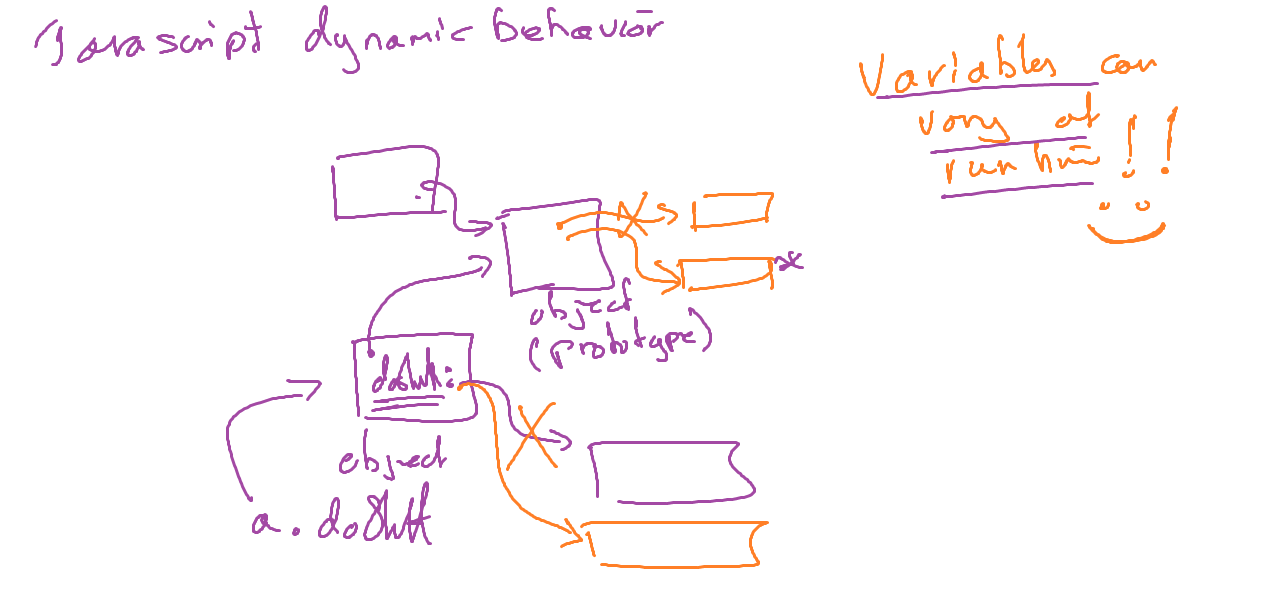 Javascript dynamic behavior
Variables can
vary at
runtime !!
object
(prototype)
doShit:
object
a.doShit